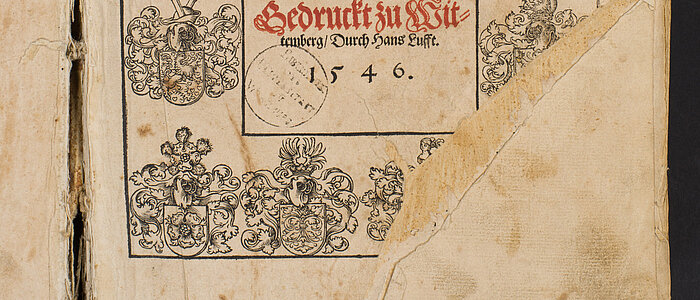 Gedruckt zu Wit⸗
temberg / Durch Hans Lufft.
1 5 4 6 .